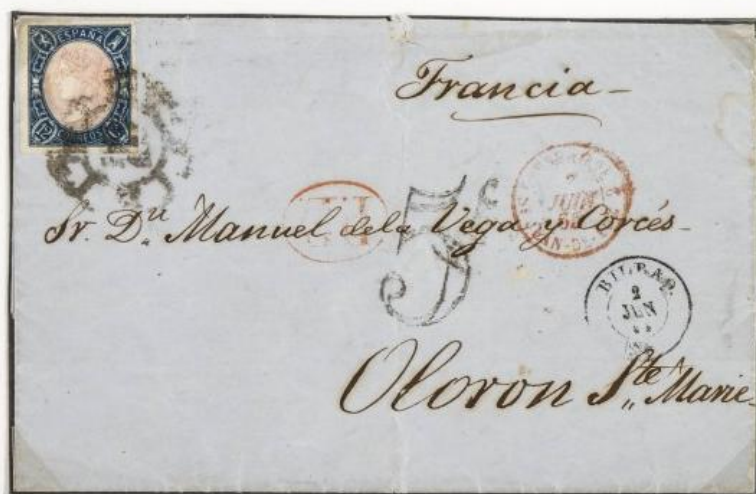 ESPAÑA
12 CORREOS
Francia
Sr. Dn. Manuel de la Vega y Corcés
5c
JUIN
BILBAO
2
JUN
Oloron Ste. Marie